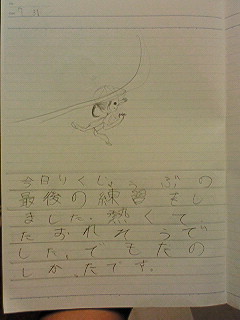 今日りくじょうぶの
最後の練習をし
ました。熱くて
たおれそうで
した。でもたの
しかったです。